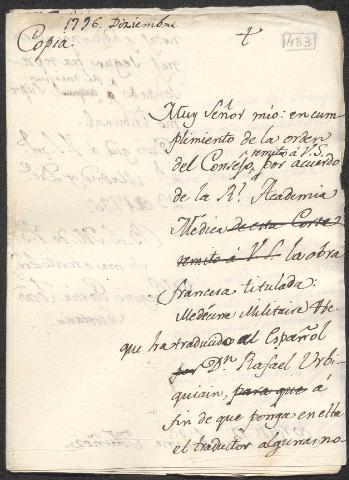 1796. Diziembre
Copia.
+
453
Muy Señor mio: en cum-
plimiento de la orden
del Consejo, remito á V.S. por acuerdo
de la Rl. Academia
Medica de esta Corte
remito á V.S. la obra
francesa titulada:
Medécine Militaire &c.
que ha traducido al Español
por Dn. Rafael Urbi-
quiain, para que á
fin de que ponga en ella
el traductor algunas no-